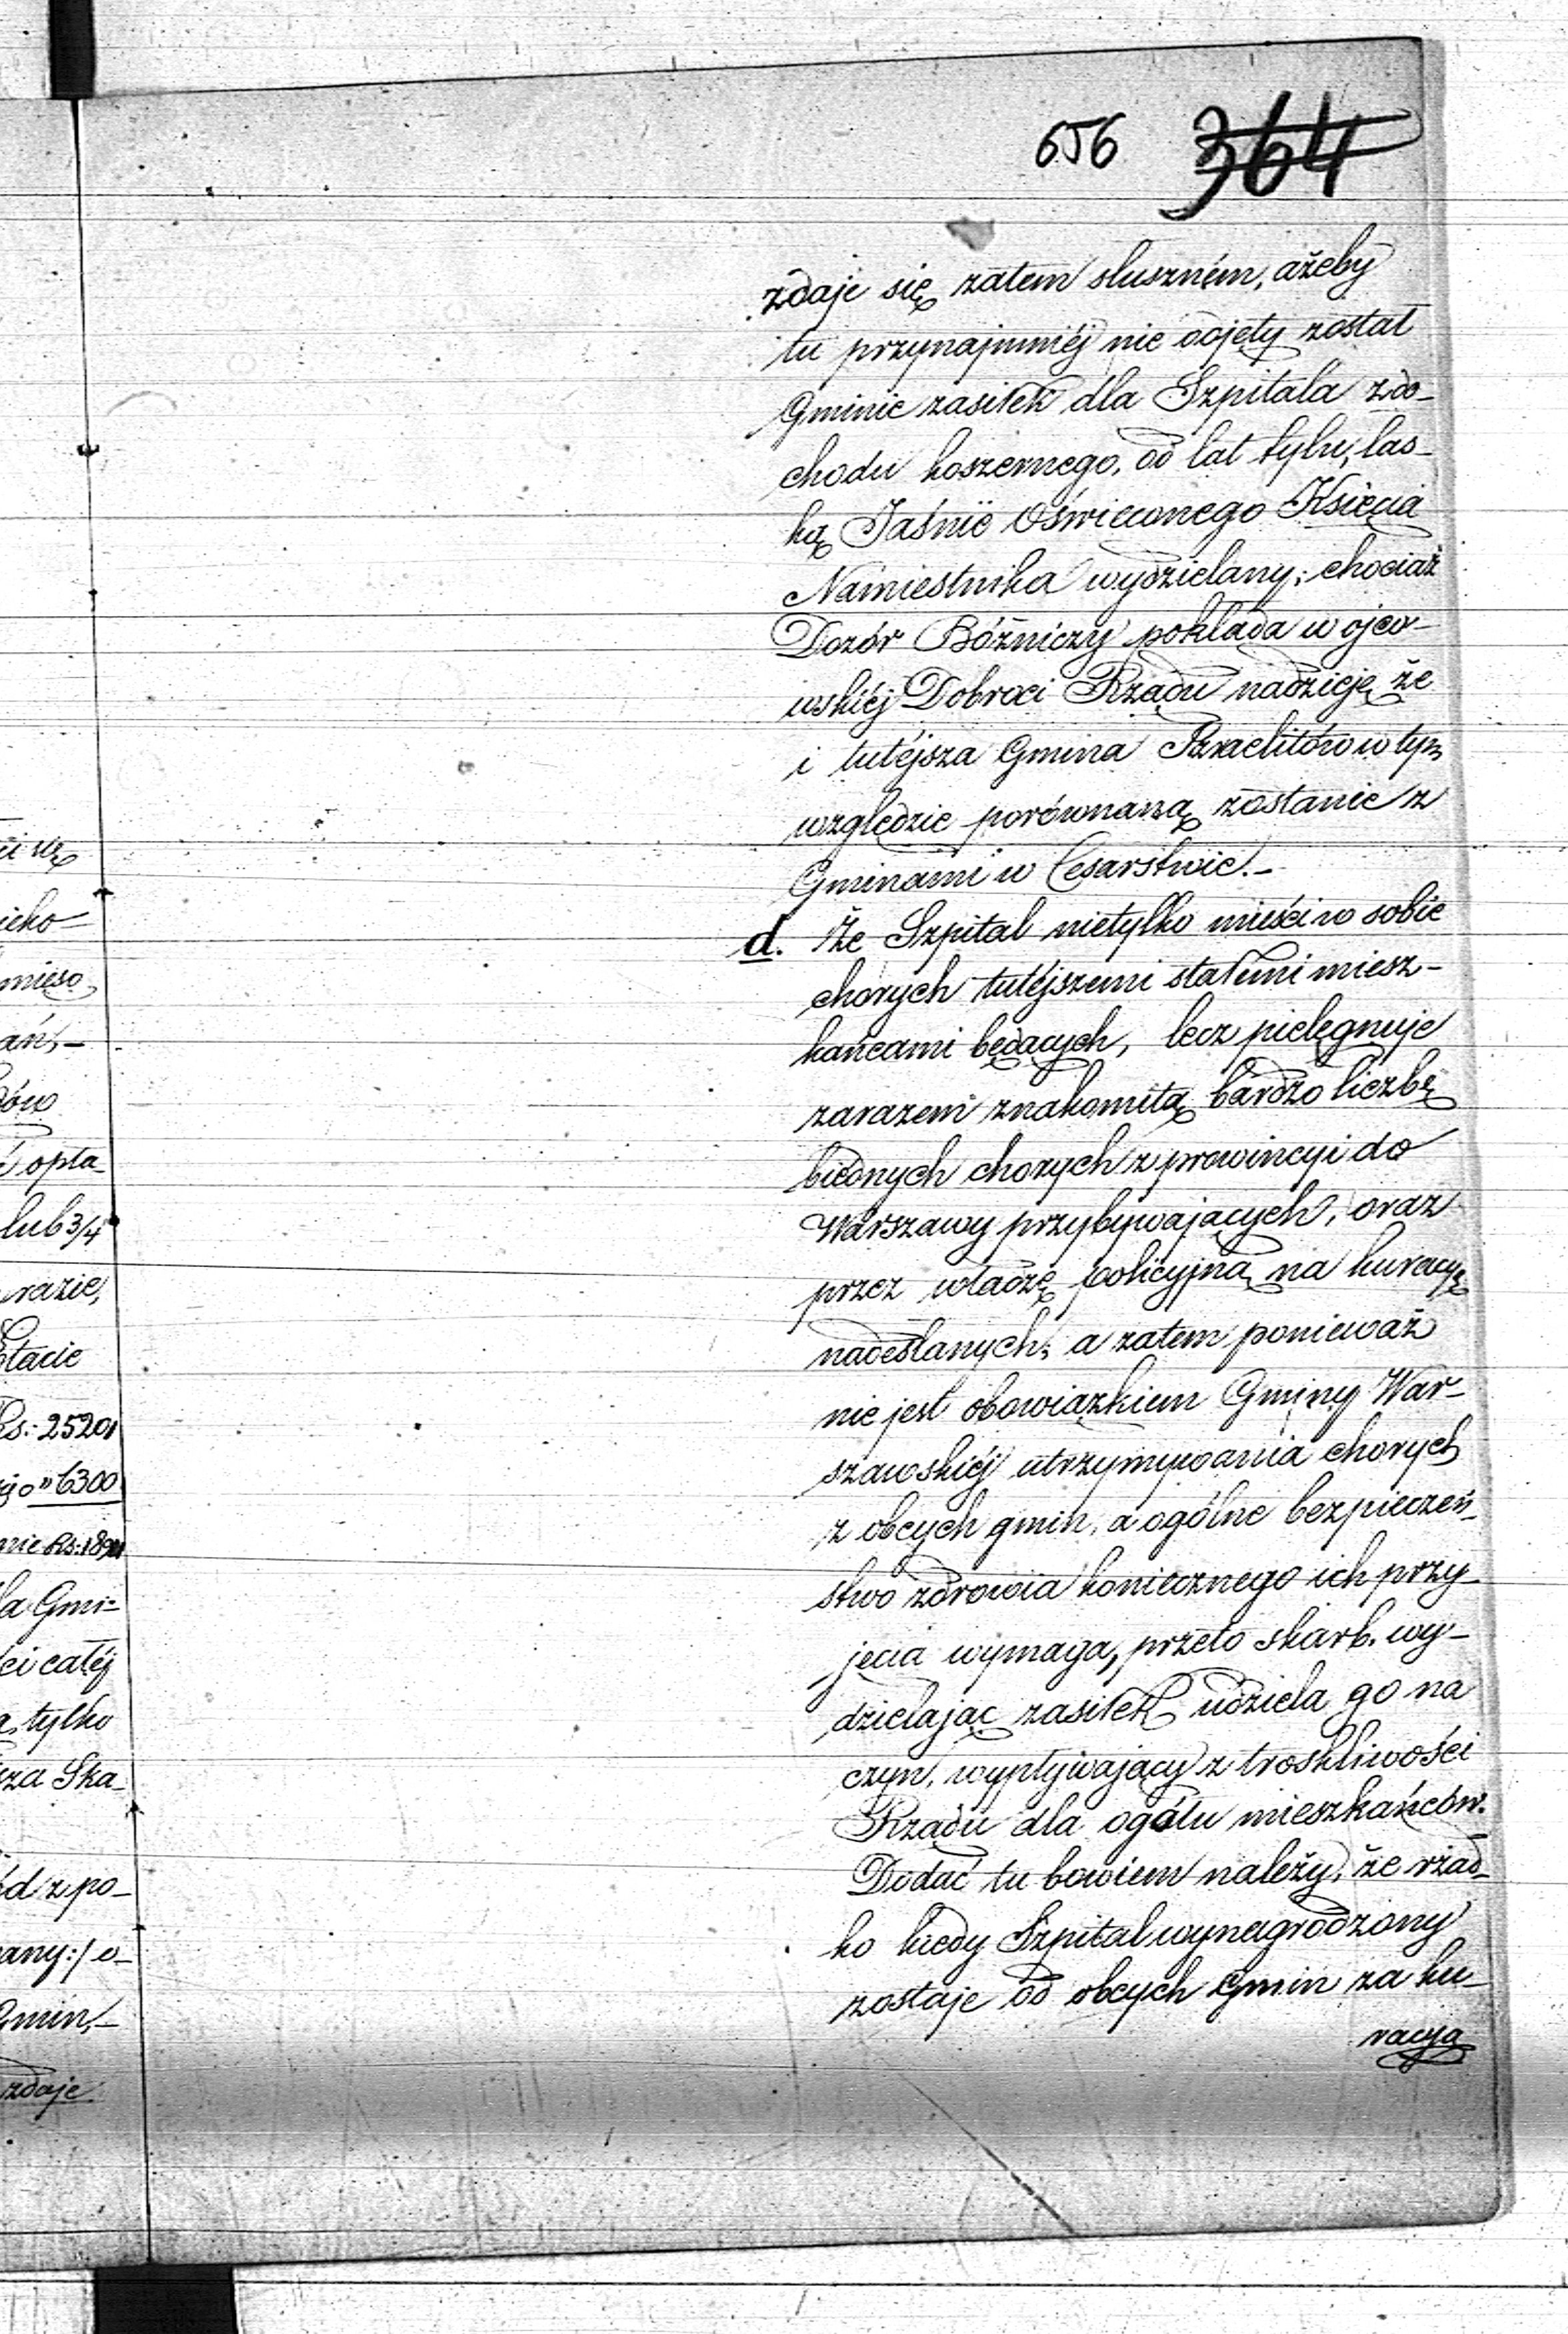 656 364
zdaje się zatem słuszném, ażeby
tu przynajmniéj nie odjęty został
Gminie zasiłek dla Szpitala z do-
chodu koszernego, od lat tylu, łas-
ką Jaśnie Oświeconego Księcia
Namiestnika wydzielany; chociaż
Dozór Bóżniczy pokłada w ojco-
wskiéj Dobroci Rządu nadzieję że
i tutéjsza Gmina Izraelitów w tym
względzie porównaną zostanie z
Gminami w Cesarstwie.-
d. Że Szpital nietylko mieści w sobie
chorych tutéjszemi stałemi miesz-
kańcami będących, lecz pielęgnuje
zarazem znakomitą bardzo liczbę
biednych chorych z prowincyi do
Warszawy przybywających, oraz
przez władzę policyjną na kuracyę
nadesłanych; a zatem ponieważ
nie jest obowiązkiem Gminy War-
szawskiéj utrzymywania chorych
z obcych gmin, a ogólne bezpieczeń-
stwo zdrowia koniecznego ich przy-
jęcia wymaga, przeto skarb. wy-
dzielając zasiłek udziela go na
czyn, wypływający z troskliwości
Rządu dla ogółu mieszkańców.
Dodać tu bowiem należy, że rzad-
ko kiedy Szpital wynagrodzony
zostaje od obcych Gmin za ku-
racyą
ieko-
mięso
ań,-
dów
opła-
lub 3/4
razie,
Etacie
Rs: 25201
go " 6300
nie Rs: 189
la Gmi-
ci całéj
tylko
sza Ska-
ód z po-
any:/ o-
Gmin,-
zdaje